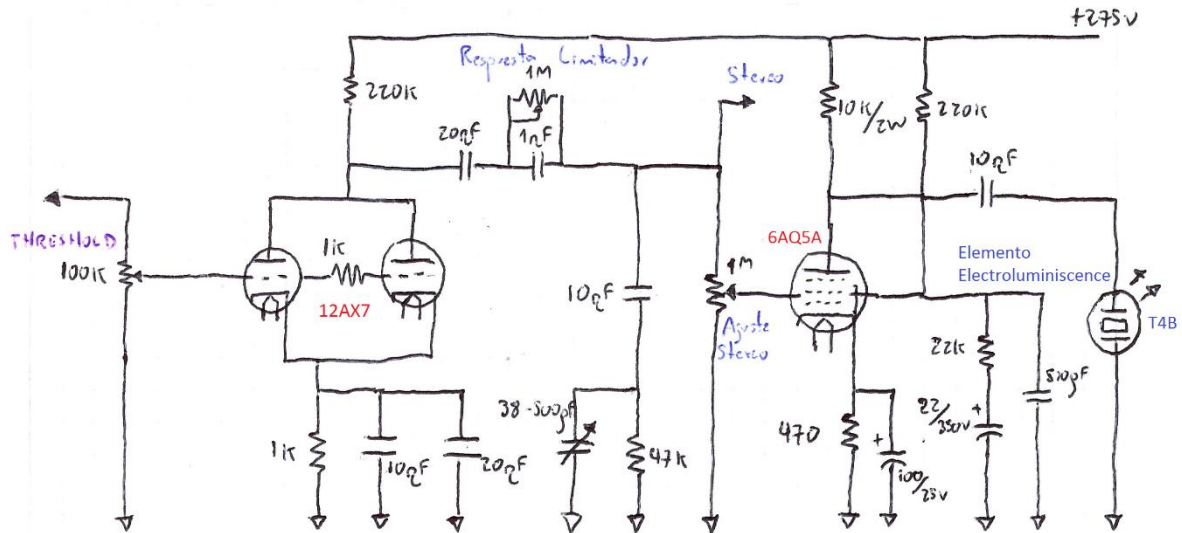 +275V
Respuesta Limitador
1M
Stereo
220K
20nF
1nF
10K/2W
220K
10nF
THRESHOLD
100K
1K
12AX7
10nF
1M
Ajuste
Stereo
6AQ5A
Elemento
Electroluminiscence
T4B
38-500pF
47K
1K
10nF
20nF
470
100/25V
22K
22/350V
510pF
+
+